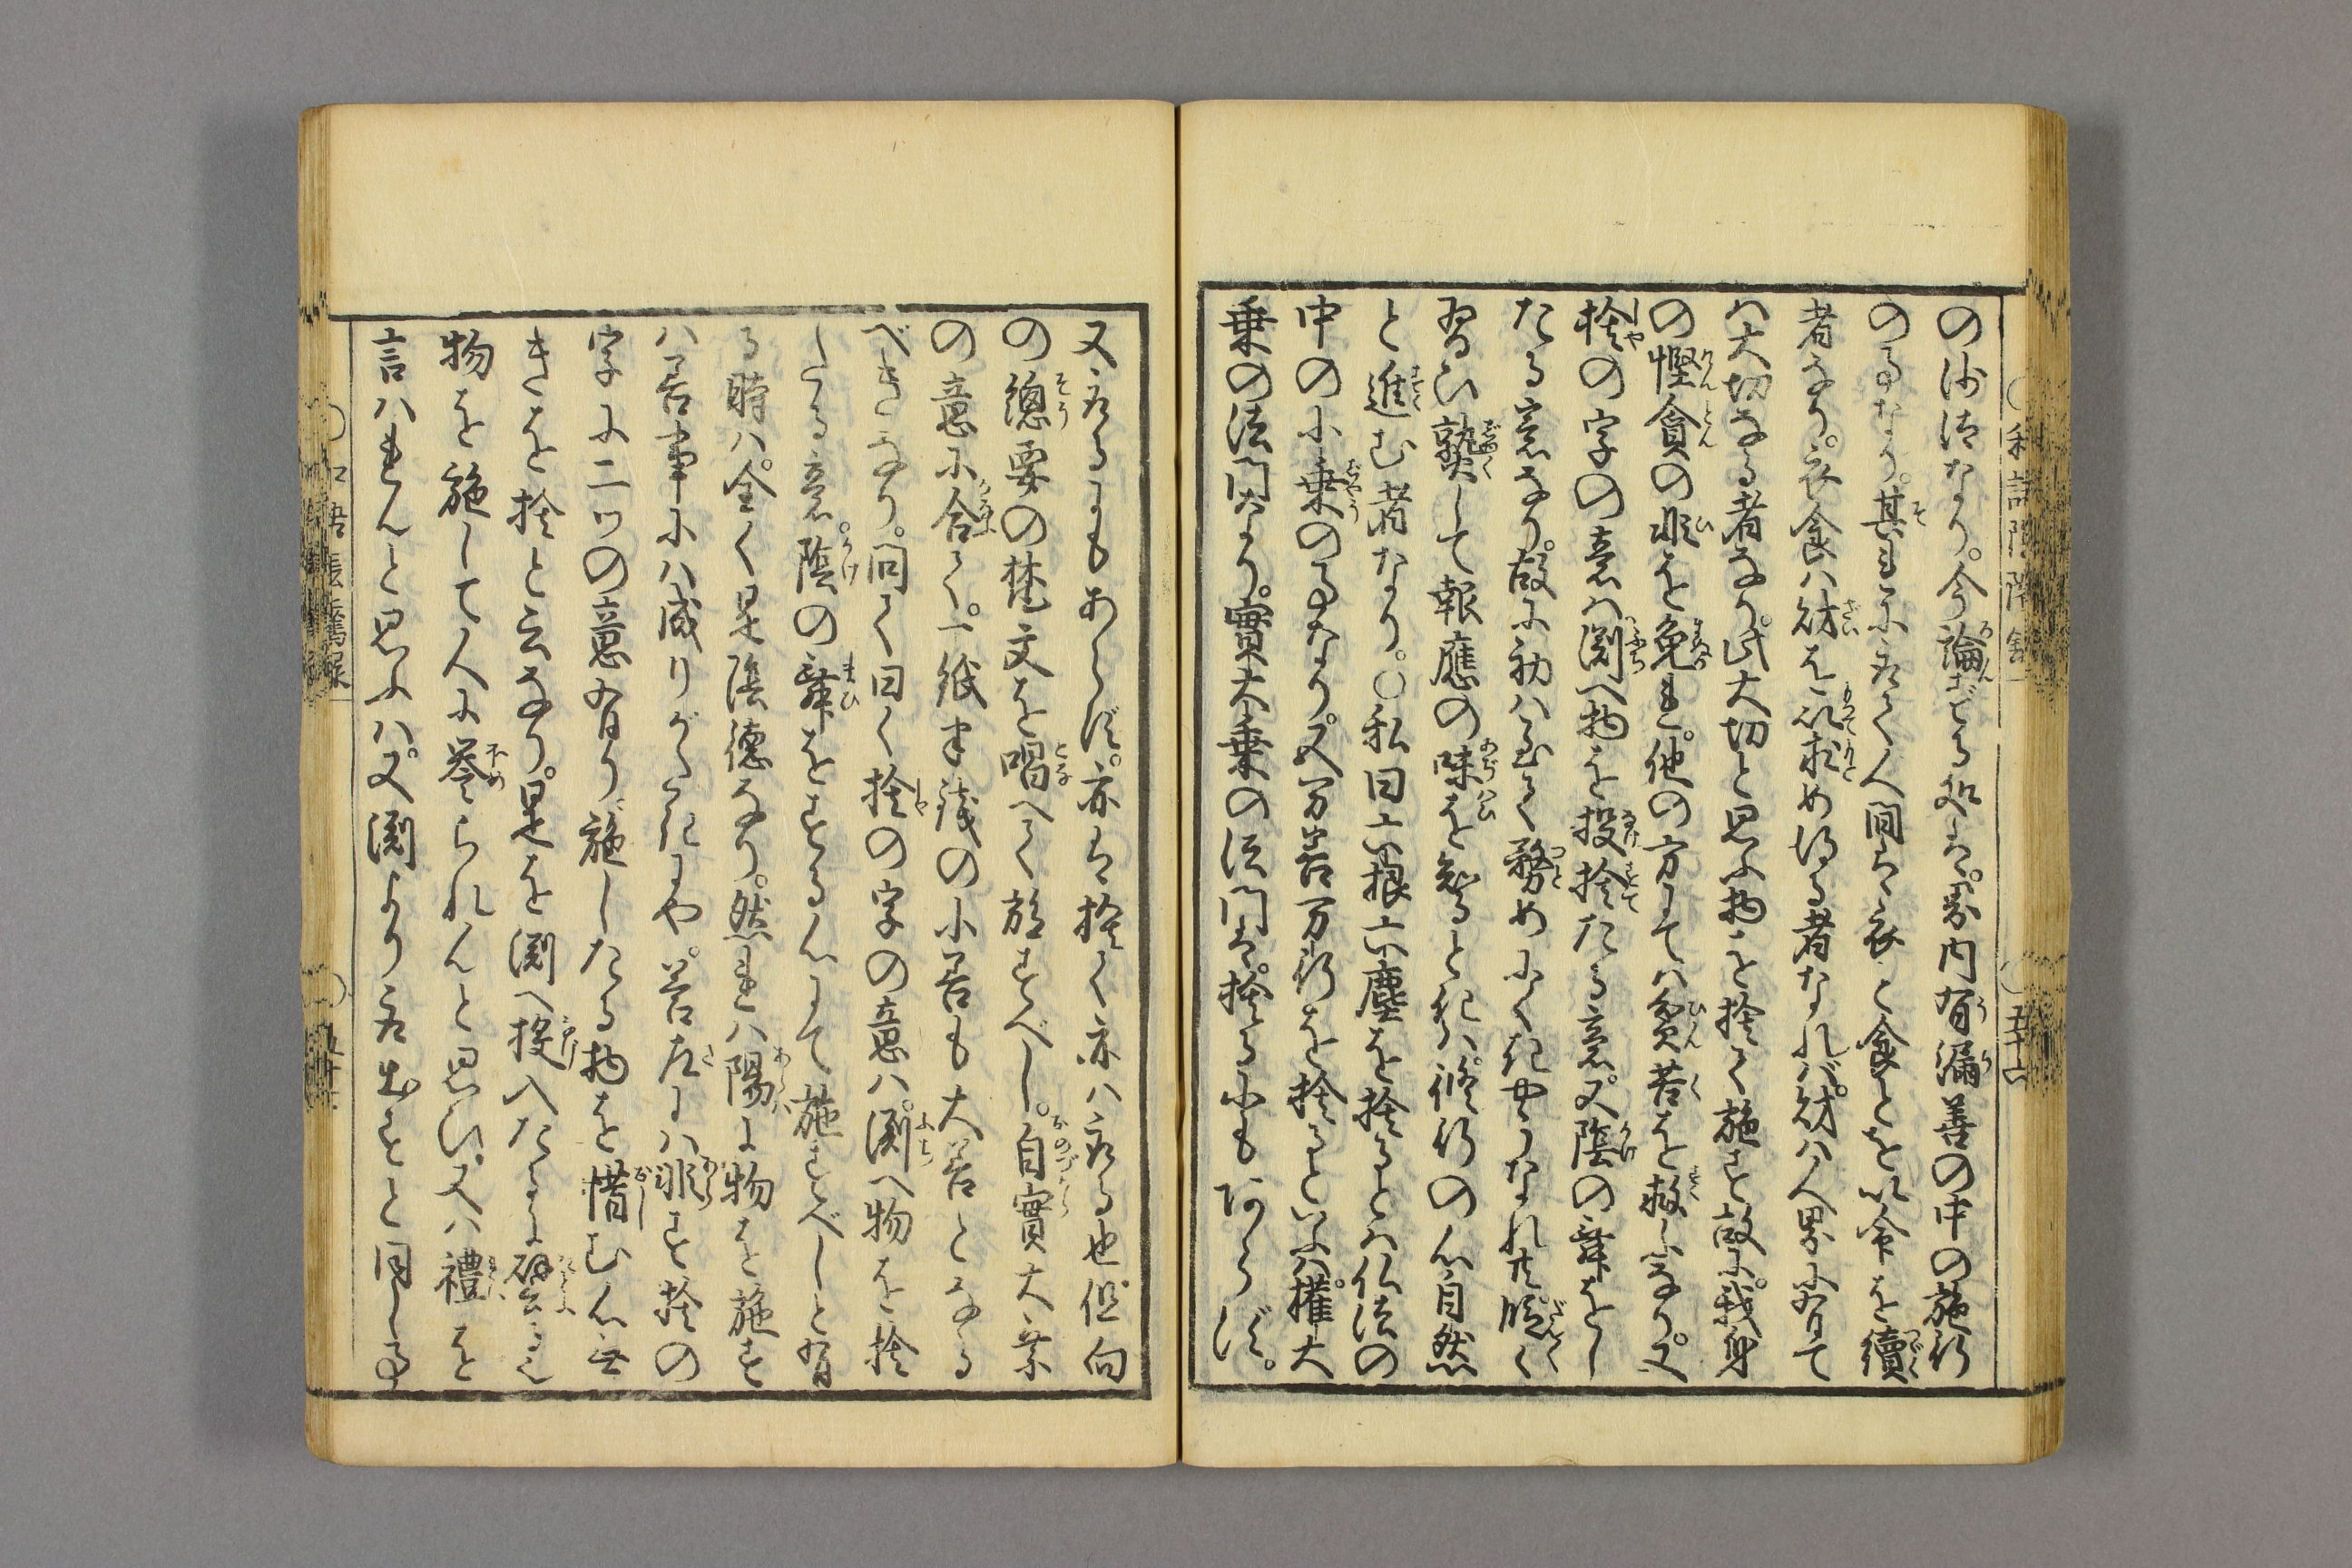 の沙汰なり。今論ずる処は。界内有漏善の中の施行
のことなり。其れに取て人間は衣と食とを以命を續
者なり。衣食ハ財を以求め得る者なれバ。財ハ人界に有て
ハ大切なる者なり。此大切と思ふ物を捨て施す故に。我身
の慳貪の非を免れ。他の方にてハ貧苦を救ふなり。又
捨の字の意ハ渕へ物を投捨たる意。又陰の舞をし
たる意なり。故に初ハ
熟して報應の味を知るときハ。修行の心自然
と進む者なり。〇私曰六根六塵を捨るとハ仏法の
中の小乗のことなり。又万善万行を捨るといふハ。權大
乗の法門なり。實大乗の法門は。捨るにもあらず。
又取るにもあらず。亦は捨て亦ハ取る也。但向
の總要の梵文を唱へて施すべし。自實大乗
の意に合て。一紙半銭の小善も大善となる
べきなり。問て曰く捨の字の意ハ。渕へ物を捨
したる意。陰の舞をする心にて施すべしと有
る時ハ。全く是陰德なり。然れハ陽に物を施す
ハ善事にハ成りがたきにや。答左にハ非ず捨の
字に二ツの意有り。施したる物を惜む心無
きを捨と云なり。是を渕へ投入たるに譬ふ
物を施して人に誉られんと思い。又ハ禮を
言ハれんと思ふハ。又渕より取出すと同じ事